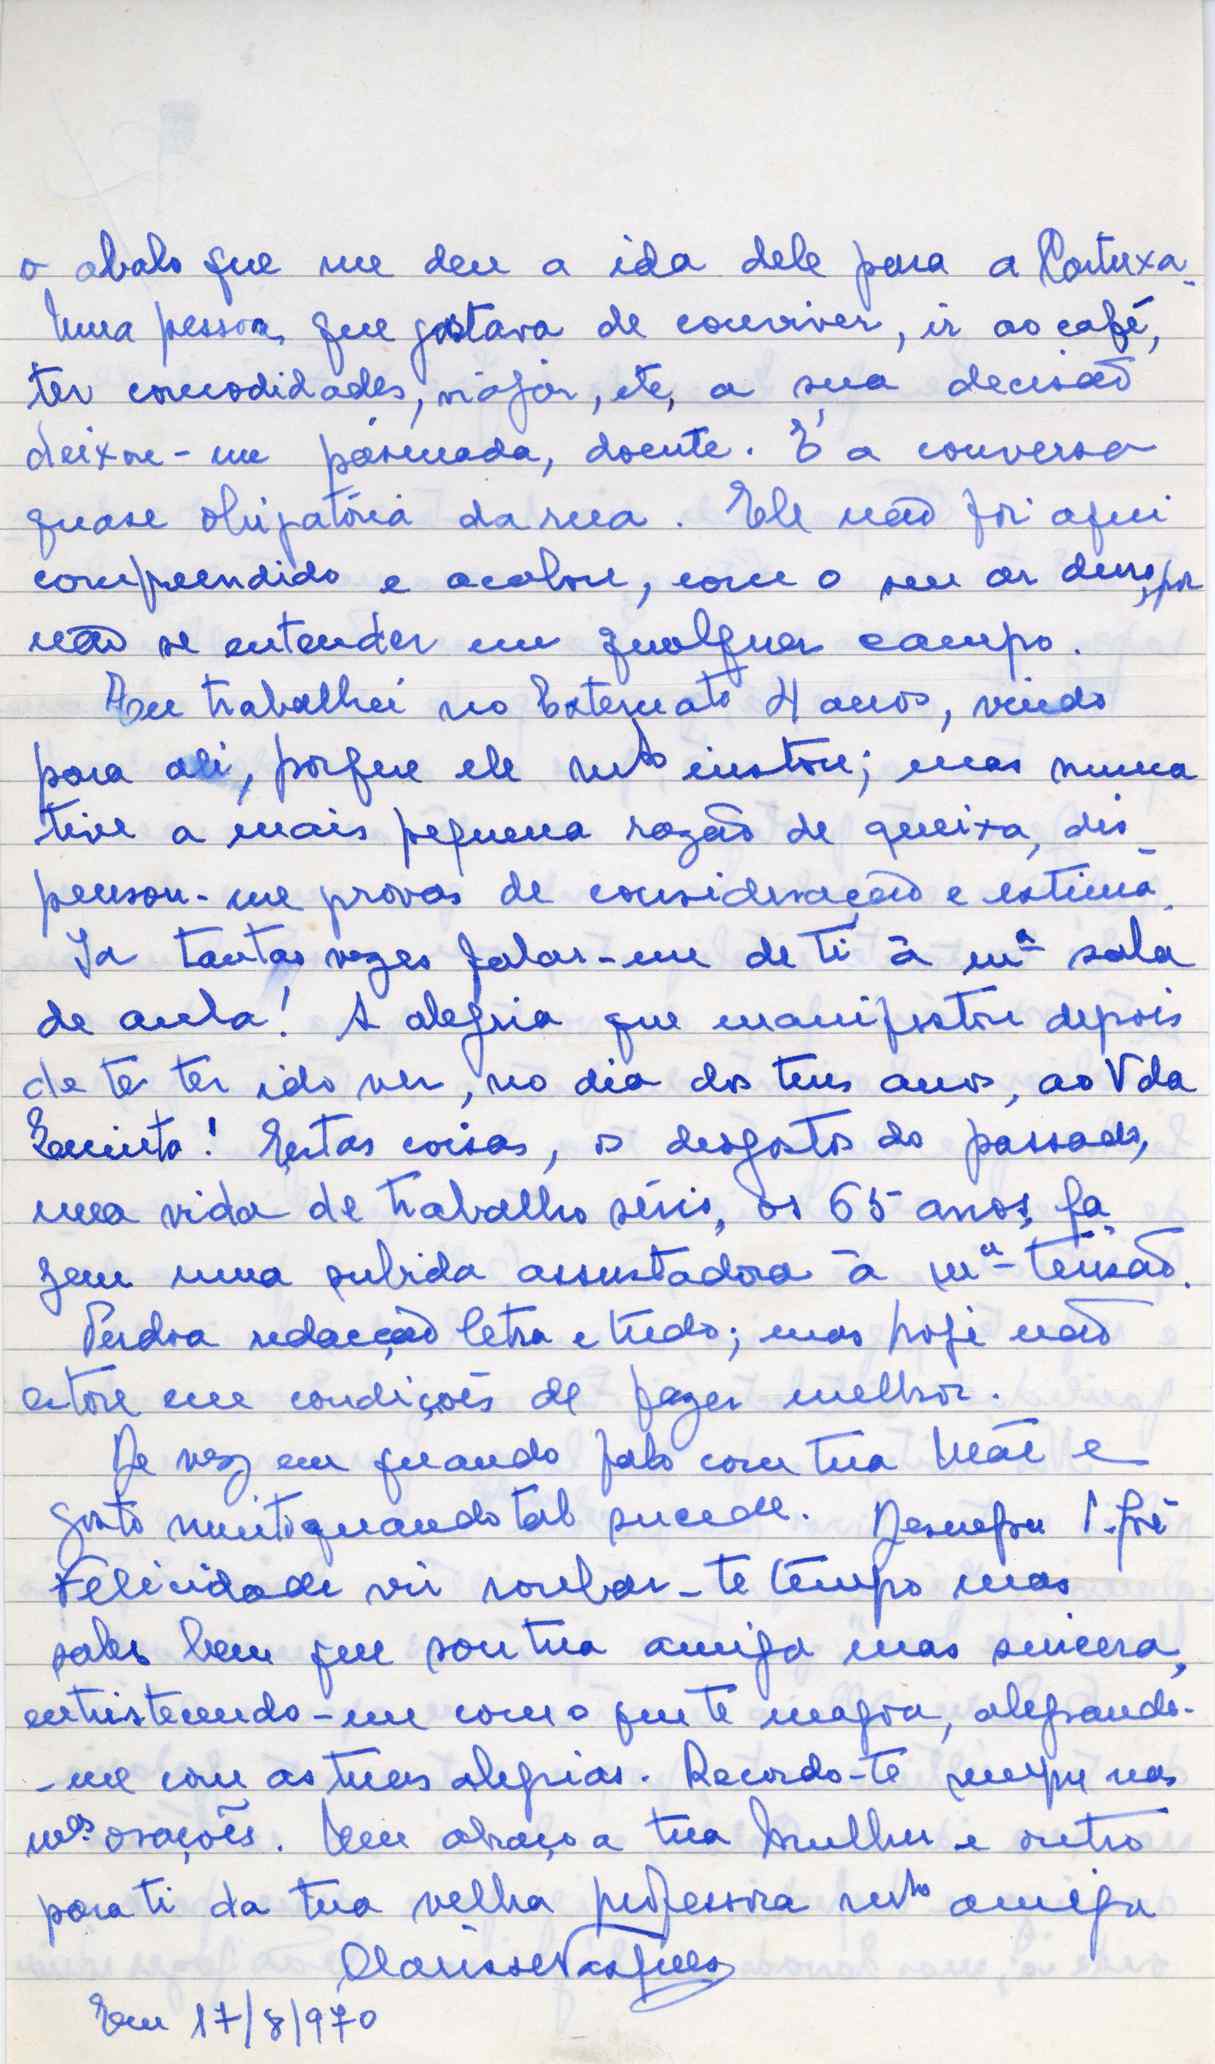 o abalo que me deu a ida dele para a Cartuxa.
Uma pessoa, que gostava de conviver, ir ao café,
ter comodidades, viajar, etc, a sua decisão
deixou-me pasmada, doente. É a conversa
quase obrigatória da rua. Ele não foi aqui
compreendido e acabou, com o seu ar duro, por
não se entender em qualquer campo.
Eu trabalhei no Externato 4 anos, vindo
para ali, porque ele mto instou; mas nunca
tive a mais pequena razão de queixa, dis
pensou-me provas de consideração e estima.
Ia tantas vezes falar-me de ti à mª sala
de aula! A alegria que manifestou depois
de te ter ido ver, no dia dos teus anos, ao V da
Quinta! Estas coisas, os desgostos do passado,
uma vida de trabalho sério, os 65 anos, fa
zem uma subida assustadora à mª tensão.
Perdoa redacção letra e tudo; mas hoje não
estou em condições de fazer melhor.
De vez em quando falo com tua Mãe e
gosto muito quando tal sucede. Desculpa
Felicidade vir roubar-te tempo mas
sabes bem que sou tua amiga mas sincera,
entristecendo-me com o que te magoa, alegrando-
-me com as tuas alegrias. Recordo-te sempre nas
mas. orações. Um abraço a tua Mulher e outro
para ti da tua velha professora mto amiga
Clarisse Vasques
Em 17/8/970